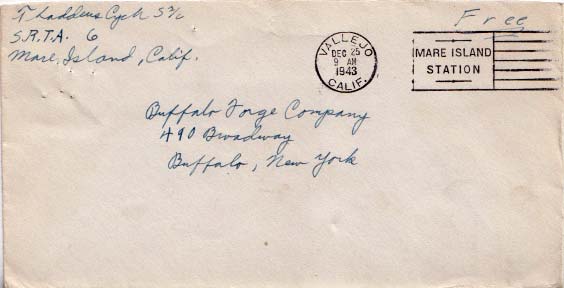 Thaddeus Cych S 2/c
S.R.T.A. 6
Mare Island, Calif.
Free
VALLEJO
DEC 25
9 AM
1943
CALIF.
MARE ISLAND
STATION
Buffalo Forge Company
490 Broadway
Buffalo, New York